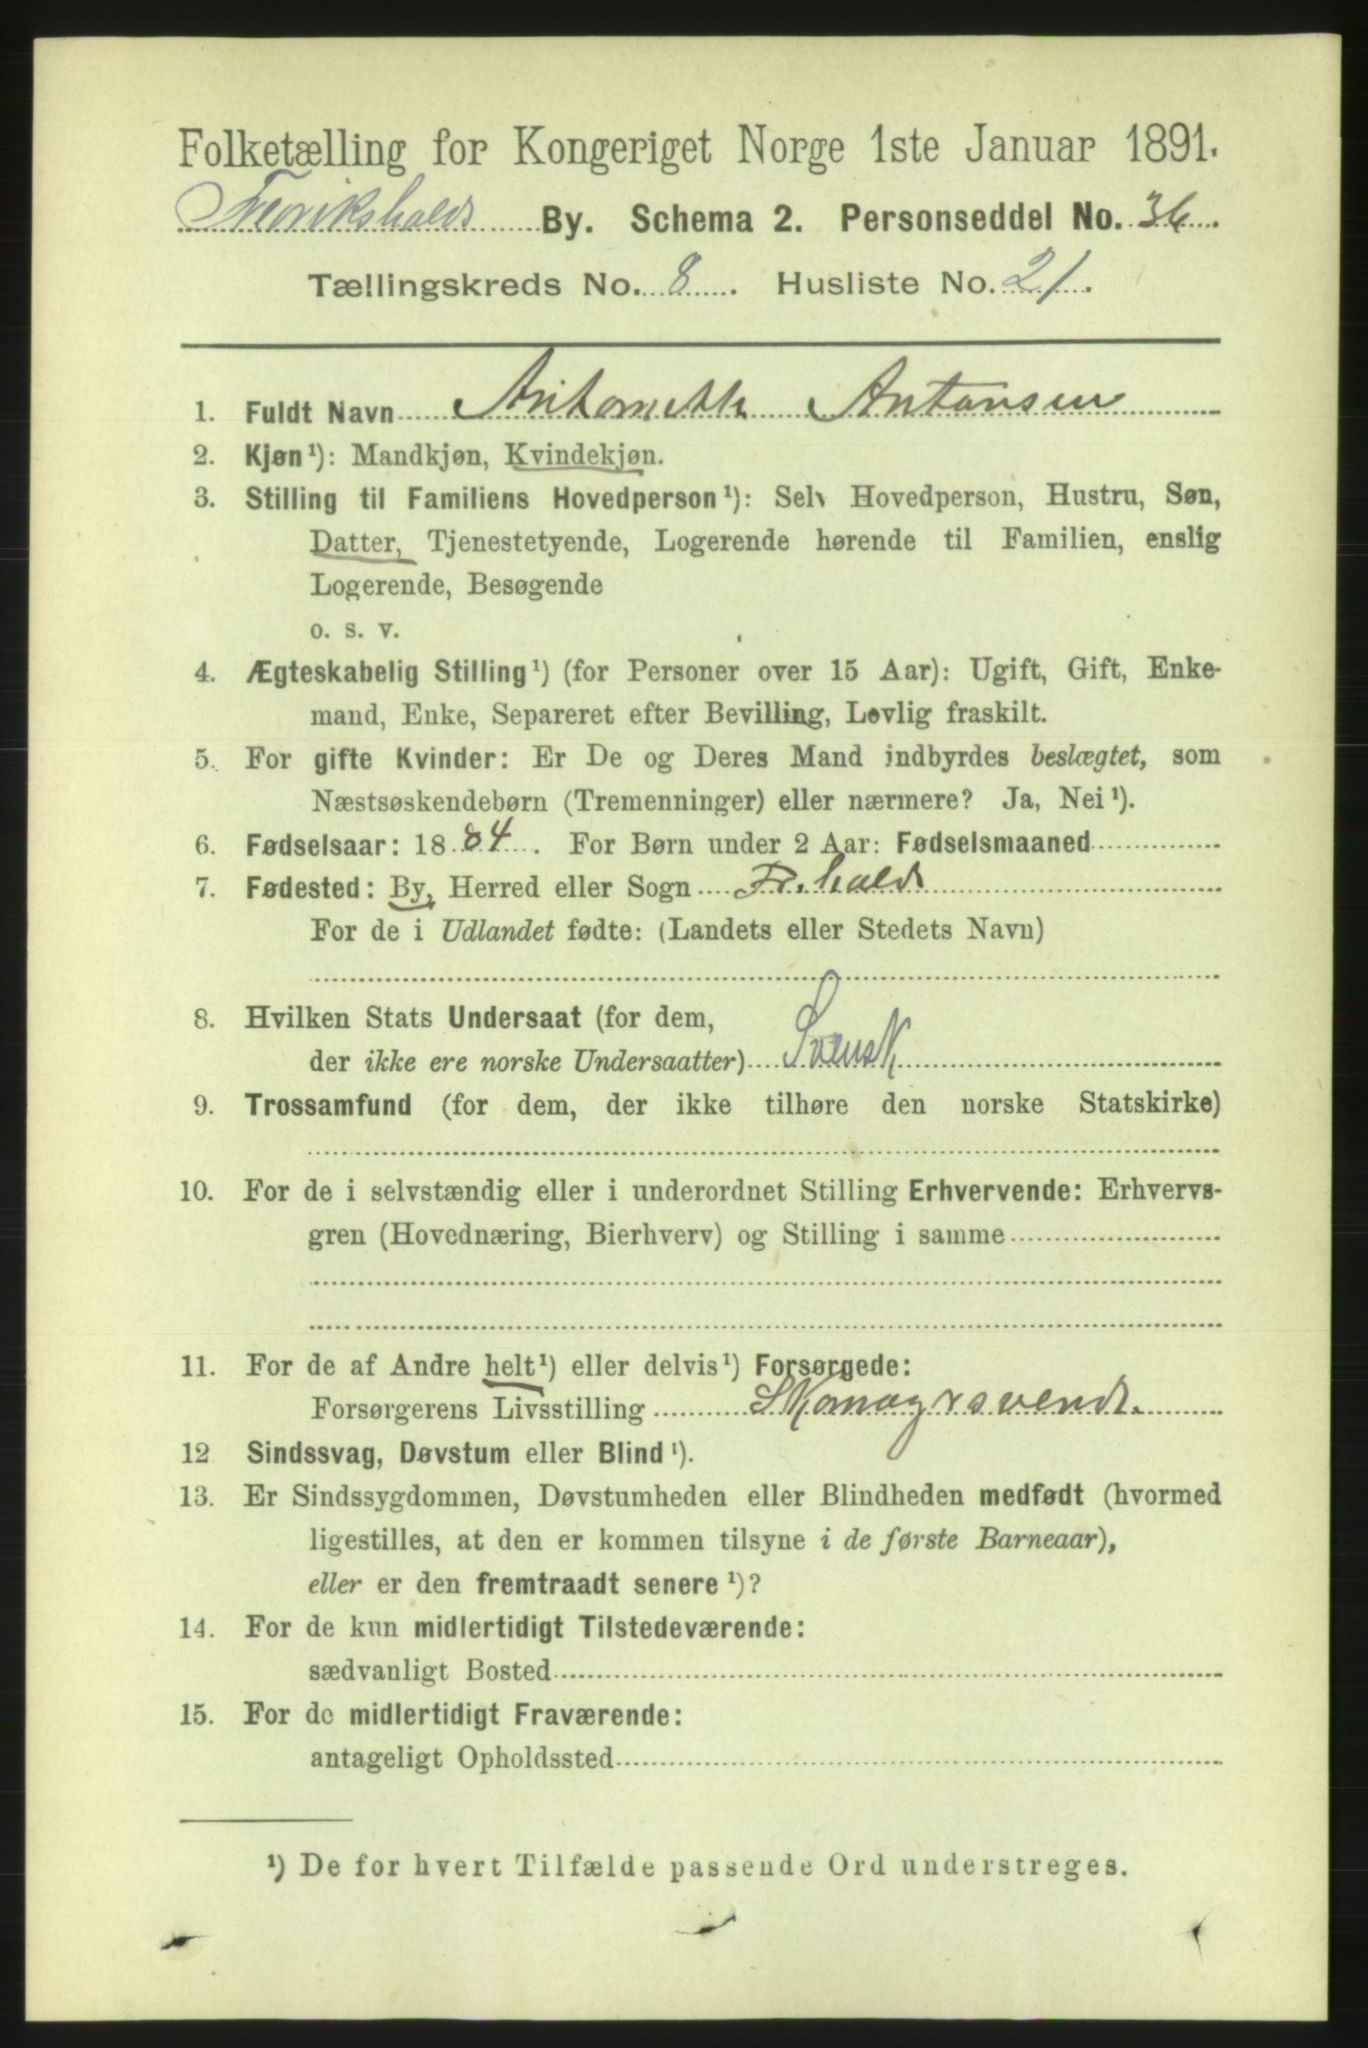 Folketælling for Kongeriget Norge 1ste Januar 1891.
Fredrikshalds By. Schema 2. Personseddel No. 36.
Tællingskreds No. 8. Husliste No. 21.
1. Fuldt Navn Antonette Antonsen
2. Kjøn¹): Mandkjøn, Kvindekjøn.
3. Stilling til Familiens Hovedperson¹): Selv Hovedperson, Hustru, Søn,
Datter, Tjenestetyende, Logerende hørende til Familien, enslig
Logerende, Besøgende
o. s. v.
4. Ægteskabelig Stilling¹) (for Personer over 15 Aar): Ugift, Gift, Enke-
mand, Enke, Separeret efter Bevilling, Lovlig fraskilt.
5. For gifte Kvinder: Er De og Deres Mand indbyrdes beslægtet, som
Næstsøskendebørn (Tremenninger) eller nærmere? Ja, Nei¹).
6. Fødselsaar: 1884. For Børn under 2 Aar: Fødselsmaaned
7. Fødested: By, Herred eller Sogn Fr.hald
For de i Udlandet fødte: (Landets eller Stedets Navn)
8. Hvilken Stats Undersaat (for dem,
der ikke ere norske Undersaatter) Svensk
9. Trossamfund (for dem, der ikke tilhøre den norske Statskirke)
10. For de i selvstændig eller i underordnet Stilling Erhvervende: Erhvervs-
gren (Hovednæring, Bierhverv) og Stilling i samme
11. For de af Andre helt¹) eller delvis¹) Forsørgede:
Forsørgerens Livsstilling Skomagrsvend.
12 Sindssvag, Døvstum eller Blind¹).
13. Er Sindssygdommen, Døvstumheden eller Blindheden medfødt (hvormed
ligestilles, at den er kommen tilsyne i de første Barneaar),
eller er den fremtraadt senere¹)?
14. For de kun midlertidigt Tilstedeværende:
sædvanligt Bosted
15. For de midlertidigt Fraværende:
antageligt Opholdssted
¹) De for hvert Tilfælde passende Ord understreges.